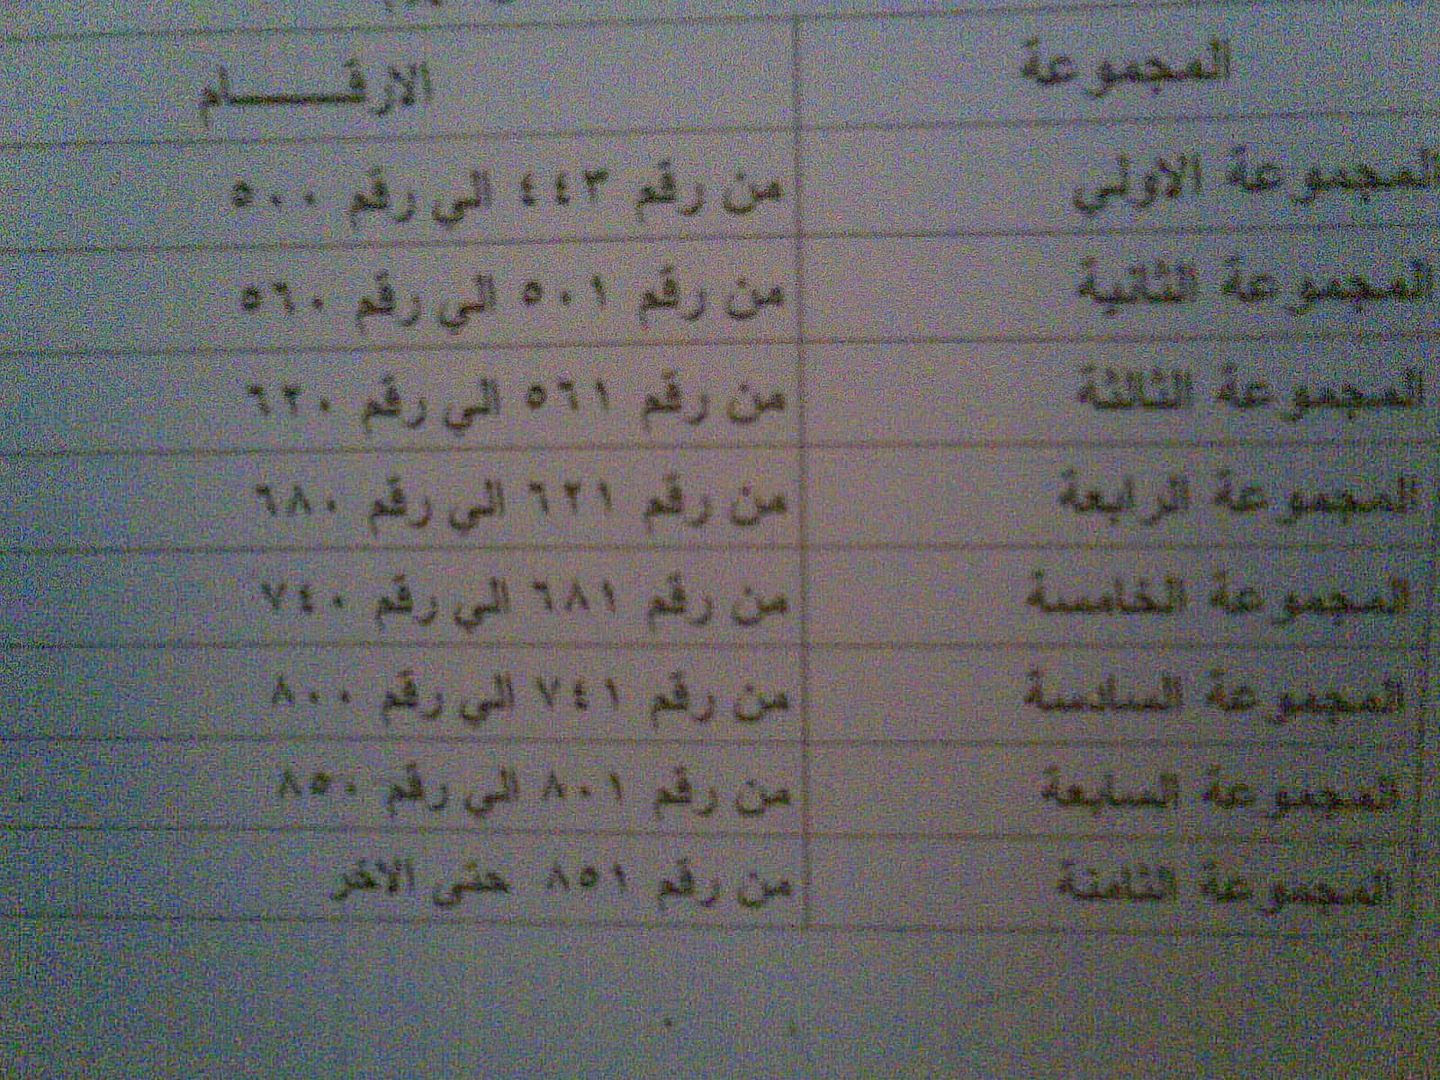 المجموعة الارقـــــــام
المجموعة الاولي من رقم ٤٤٣ الي رقم ٥٠٠
المجموعة الثانية من رقم ٥٠١ الي رقم ٥٦٠
المجموعة الثالثة من رقم ٥٦١ الي رقم ٦٢٠
المجموعة الرابعة من رقم ٦٢١ الي رقم ٦٨٠
المجموعة الخامسة من رقم ٦٨١ الي رقم ٧٤٠
المجموعة السادسة من رقم ٧٤١ الي رقم ٨٠٠
المجموعة السابعة من رقم ٨٠١ الي رقم ٨٥٠
المجموعة الثامنة من رقم ٨٥١ حتى الاخر